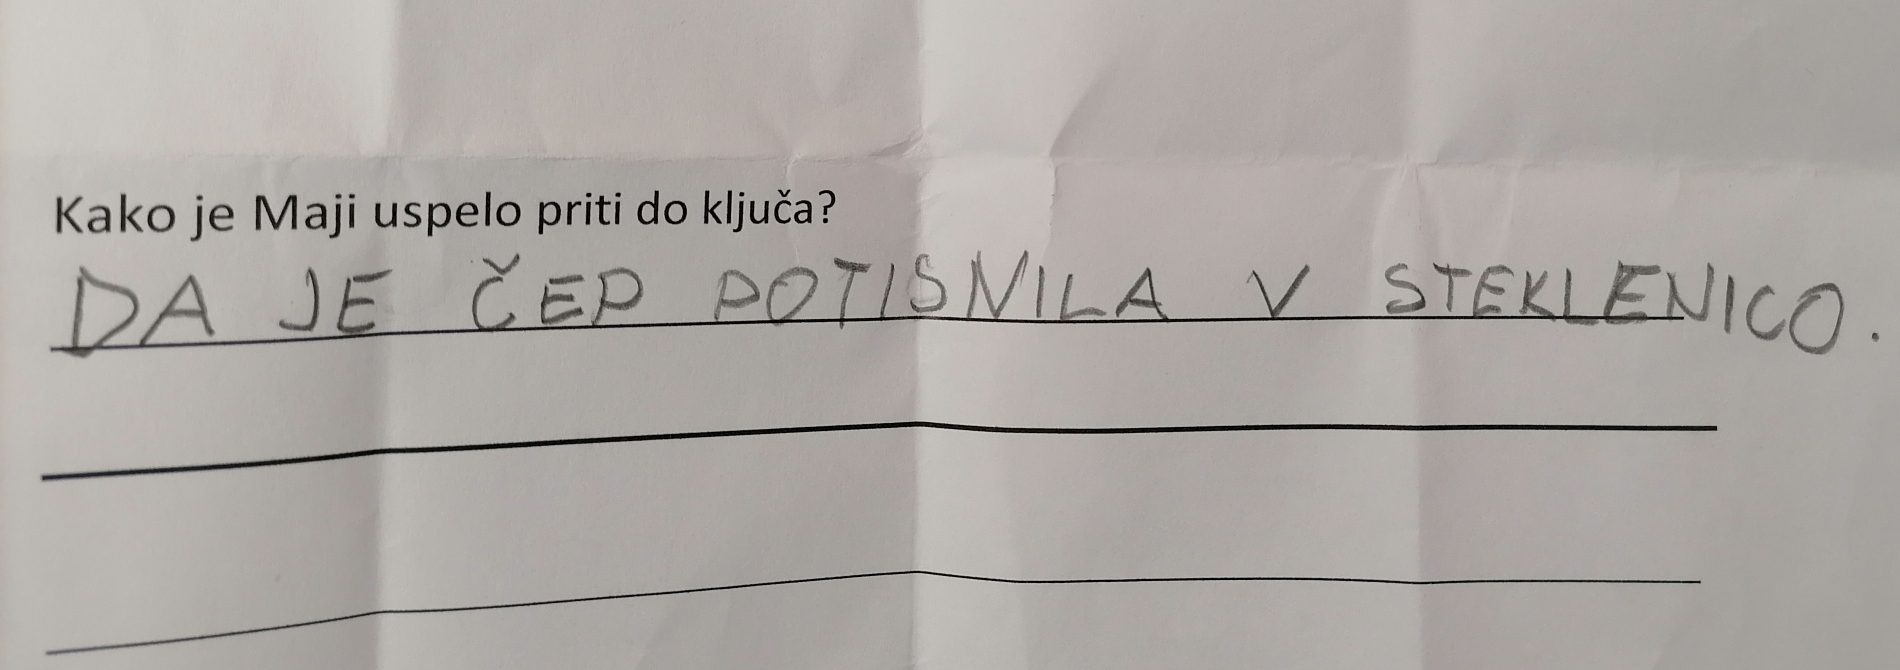 Kako je Maji uspelo priti do ključa?
DA JE ČEP POTISNILA V STEKLENICO.